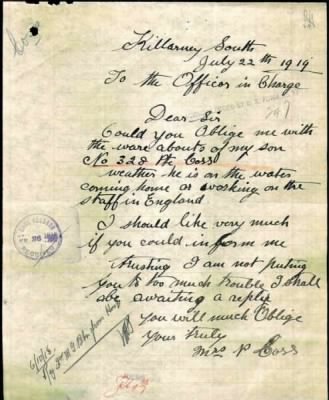 Killarney South
July 22th 1919
To the Officer in Charge
Dear Sir
Could you Oblige me with
the ware abouts of my son
No 328 Pte Coss
weather he is on the water
coming home or working on the
staff in England
I should like very much
if you could inform me
trusting I am not puting
you to too much trouble I shall
be awaiting a reply
you will much Oblige
Yours truly
Mrs P Coss